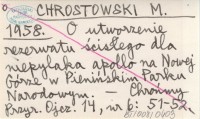 CHROSTOWSKI M.
1958. O utworzenie
rezerwatu ścisłego dla
niepylaka apollo na Nowej
Górze w Pienińskim Parku
Narodowym. — Chrońmy
Przyr. Ojcz. 14, nr 6: 51-52.